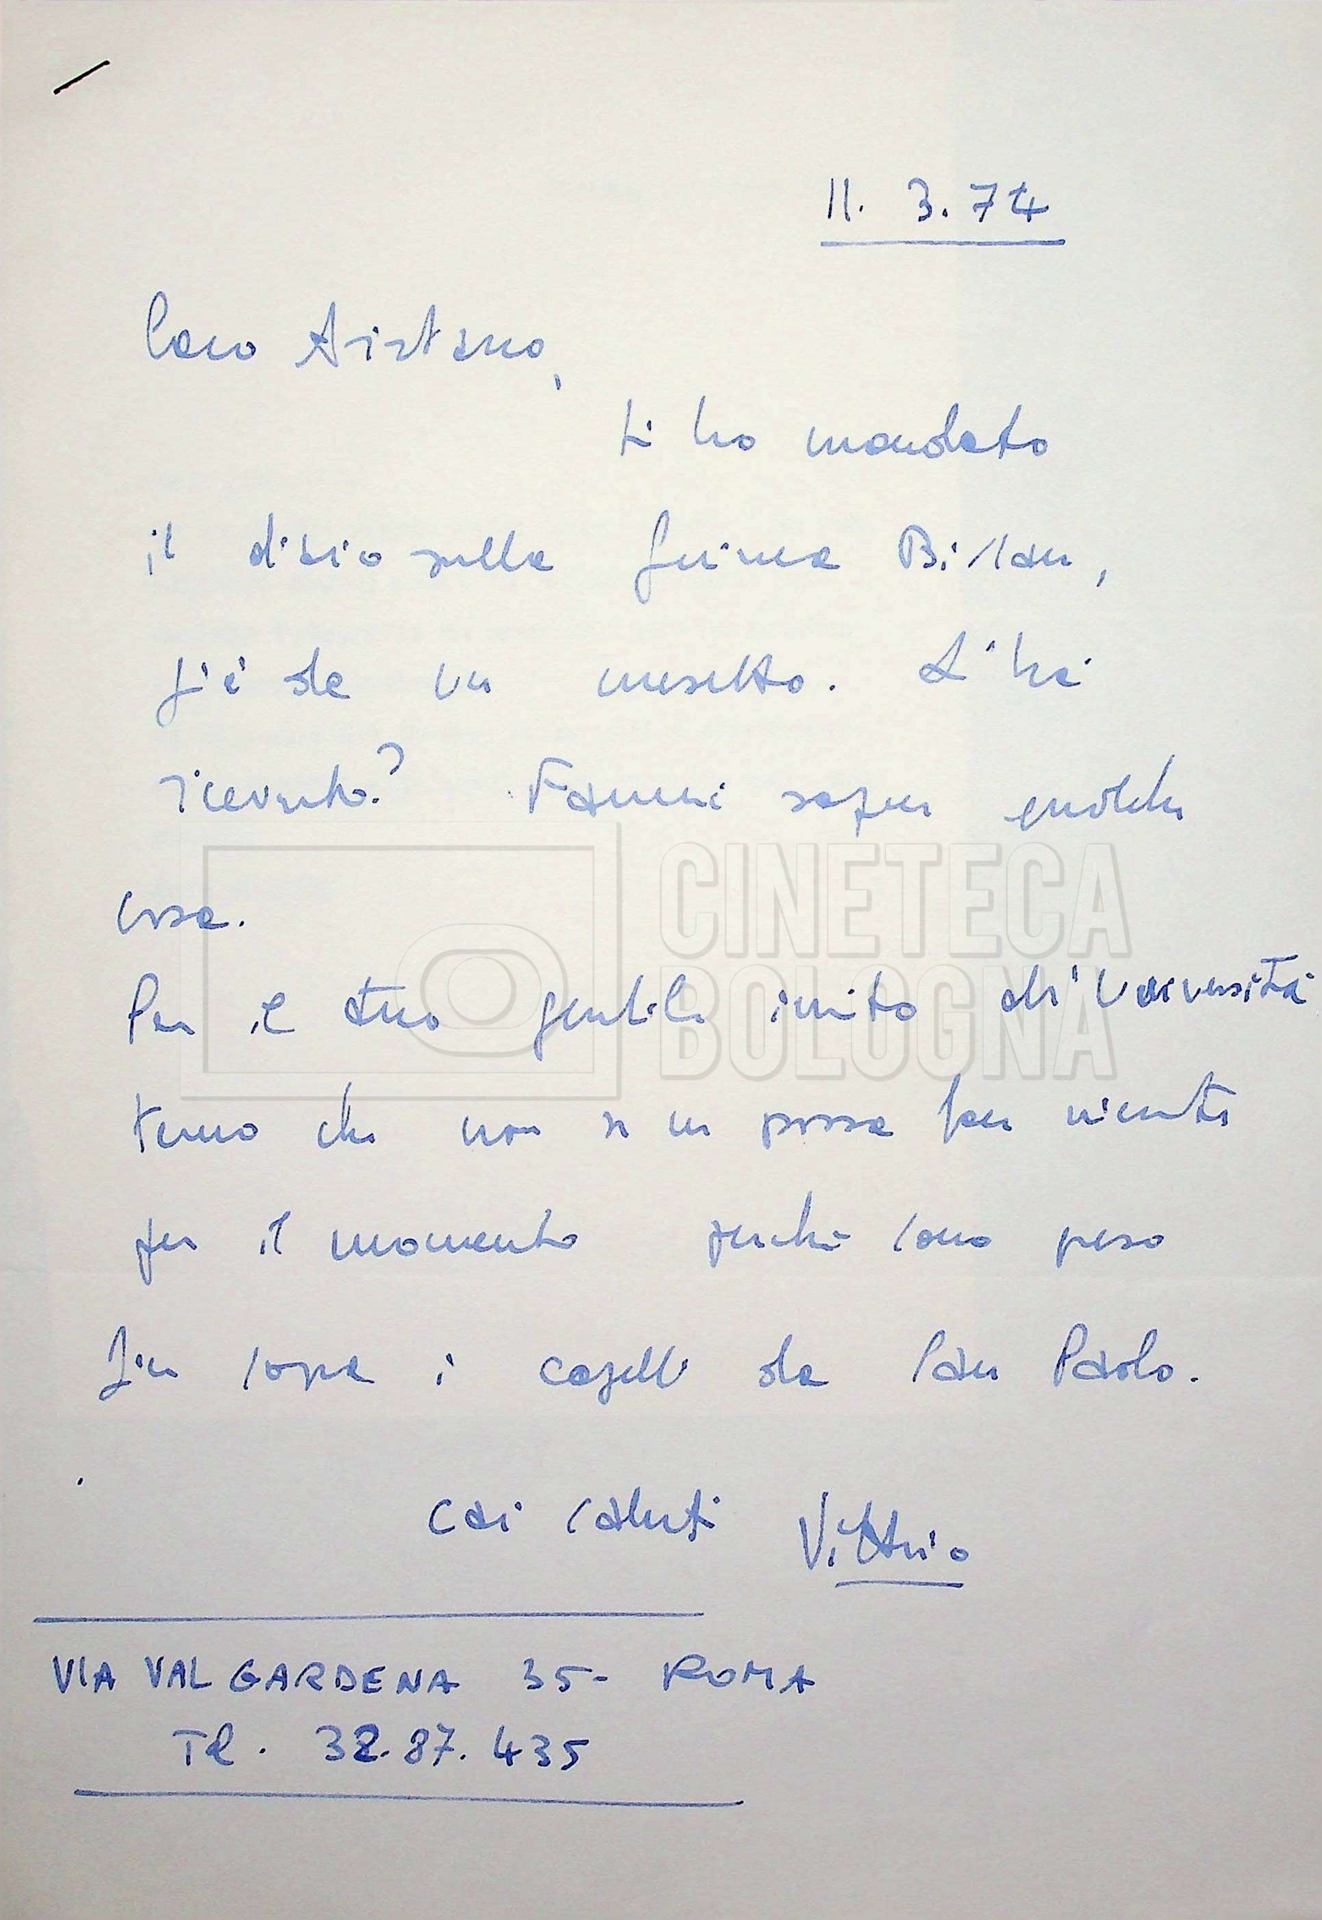 11. 3. 74
Caro Aristarco,
ti ho mandato
il diario sulla Guinea Bissau,
già da un mesetto. L'hai
ricevuto? Fammi saper qualche
cosa.
CINETECA
BOLOGNA
Per il tuo gentile invito all'Università
temo che non se ne possa far niente
per il momento perché sono preso
fin sopra i capelli da San Paolo.
Cari saluti Vittorio
VIA VAL GARDENA 35 - ROMA
Tel. 32.87.435